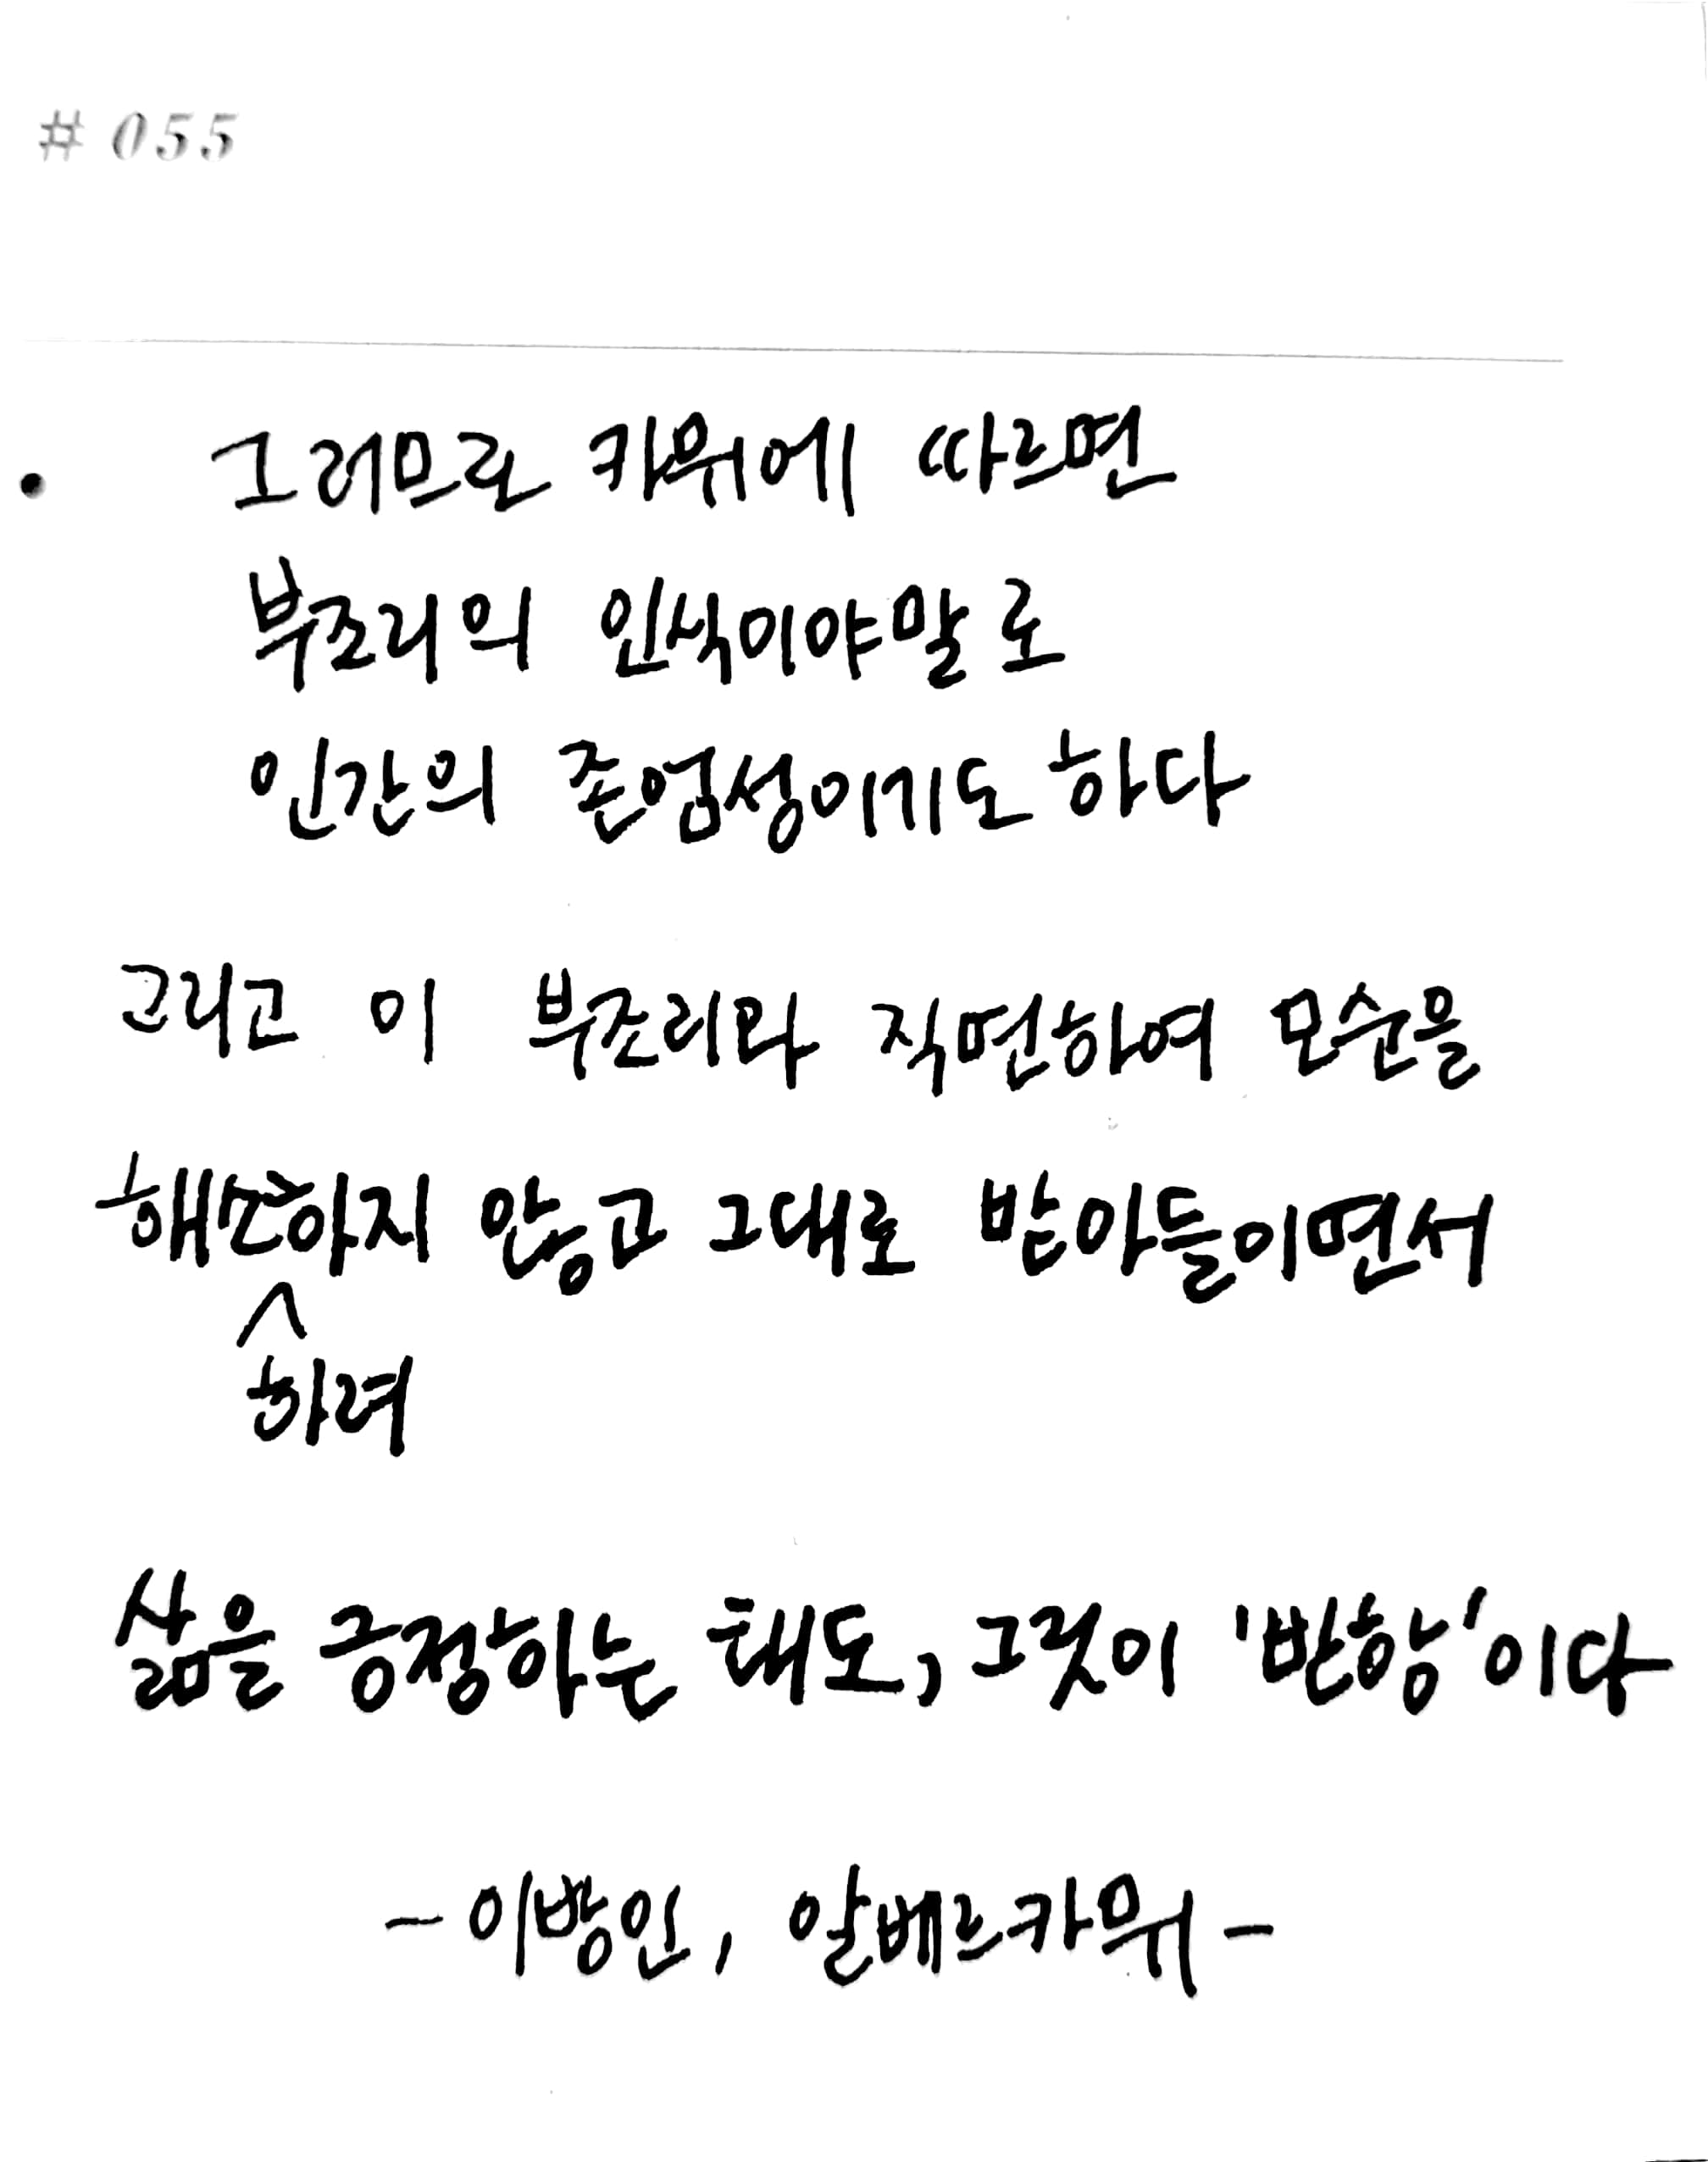 #055
그러므로 카뮈에 따르면
부조리의 인식이야말로
인간의 존엄성이기도 하다
그리고 이 부조리와 직면하여 모순을
해소하지 않고 그대로 받아들이면서
하려
삶을 긍정하는 태도, 그것이 '반항'이다
- 이방인, 알베르카뮈 -